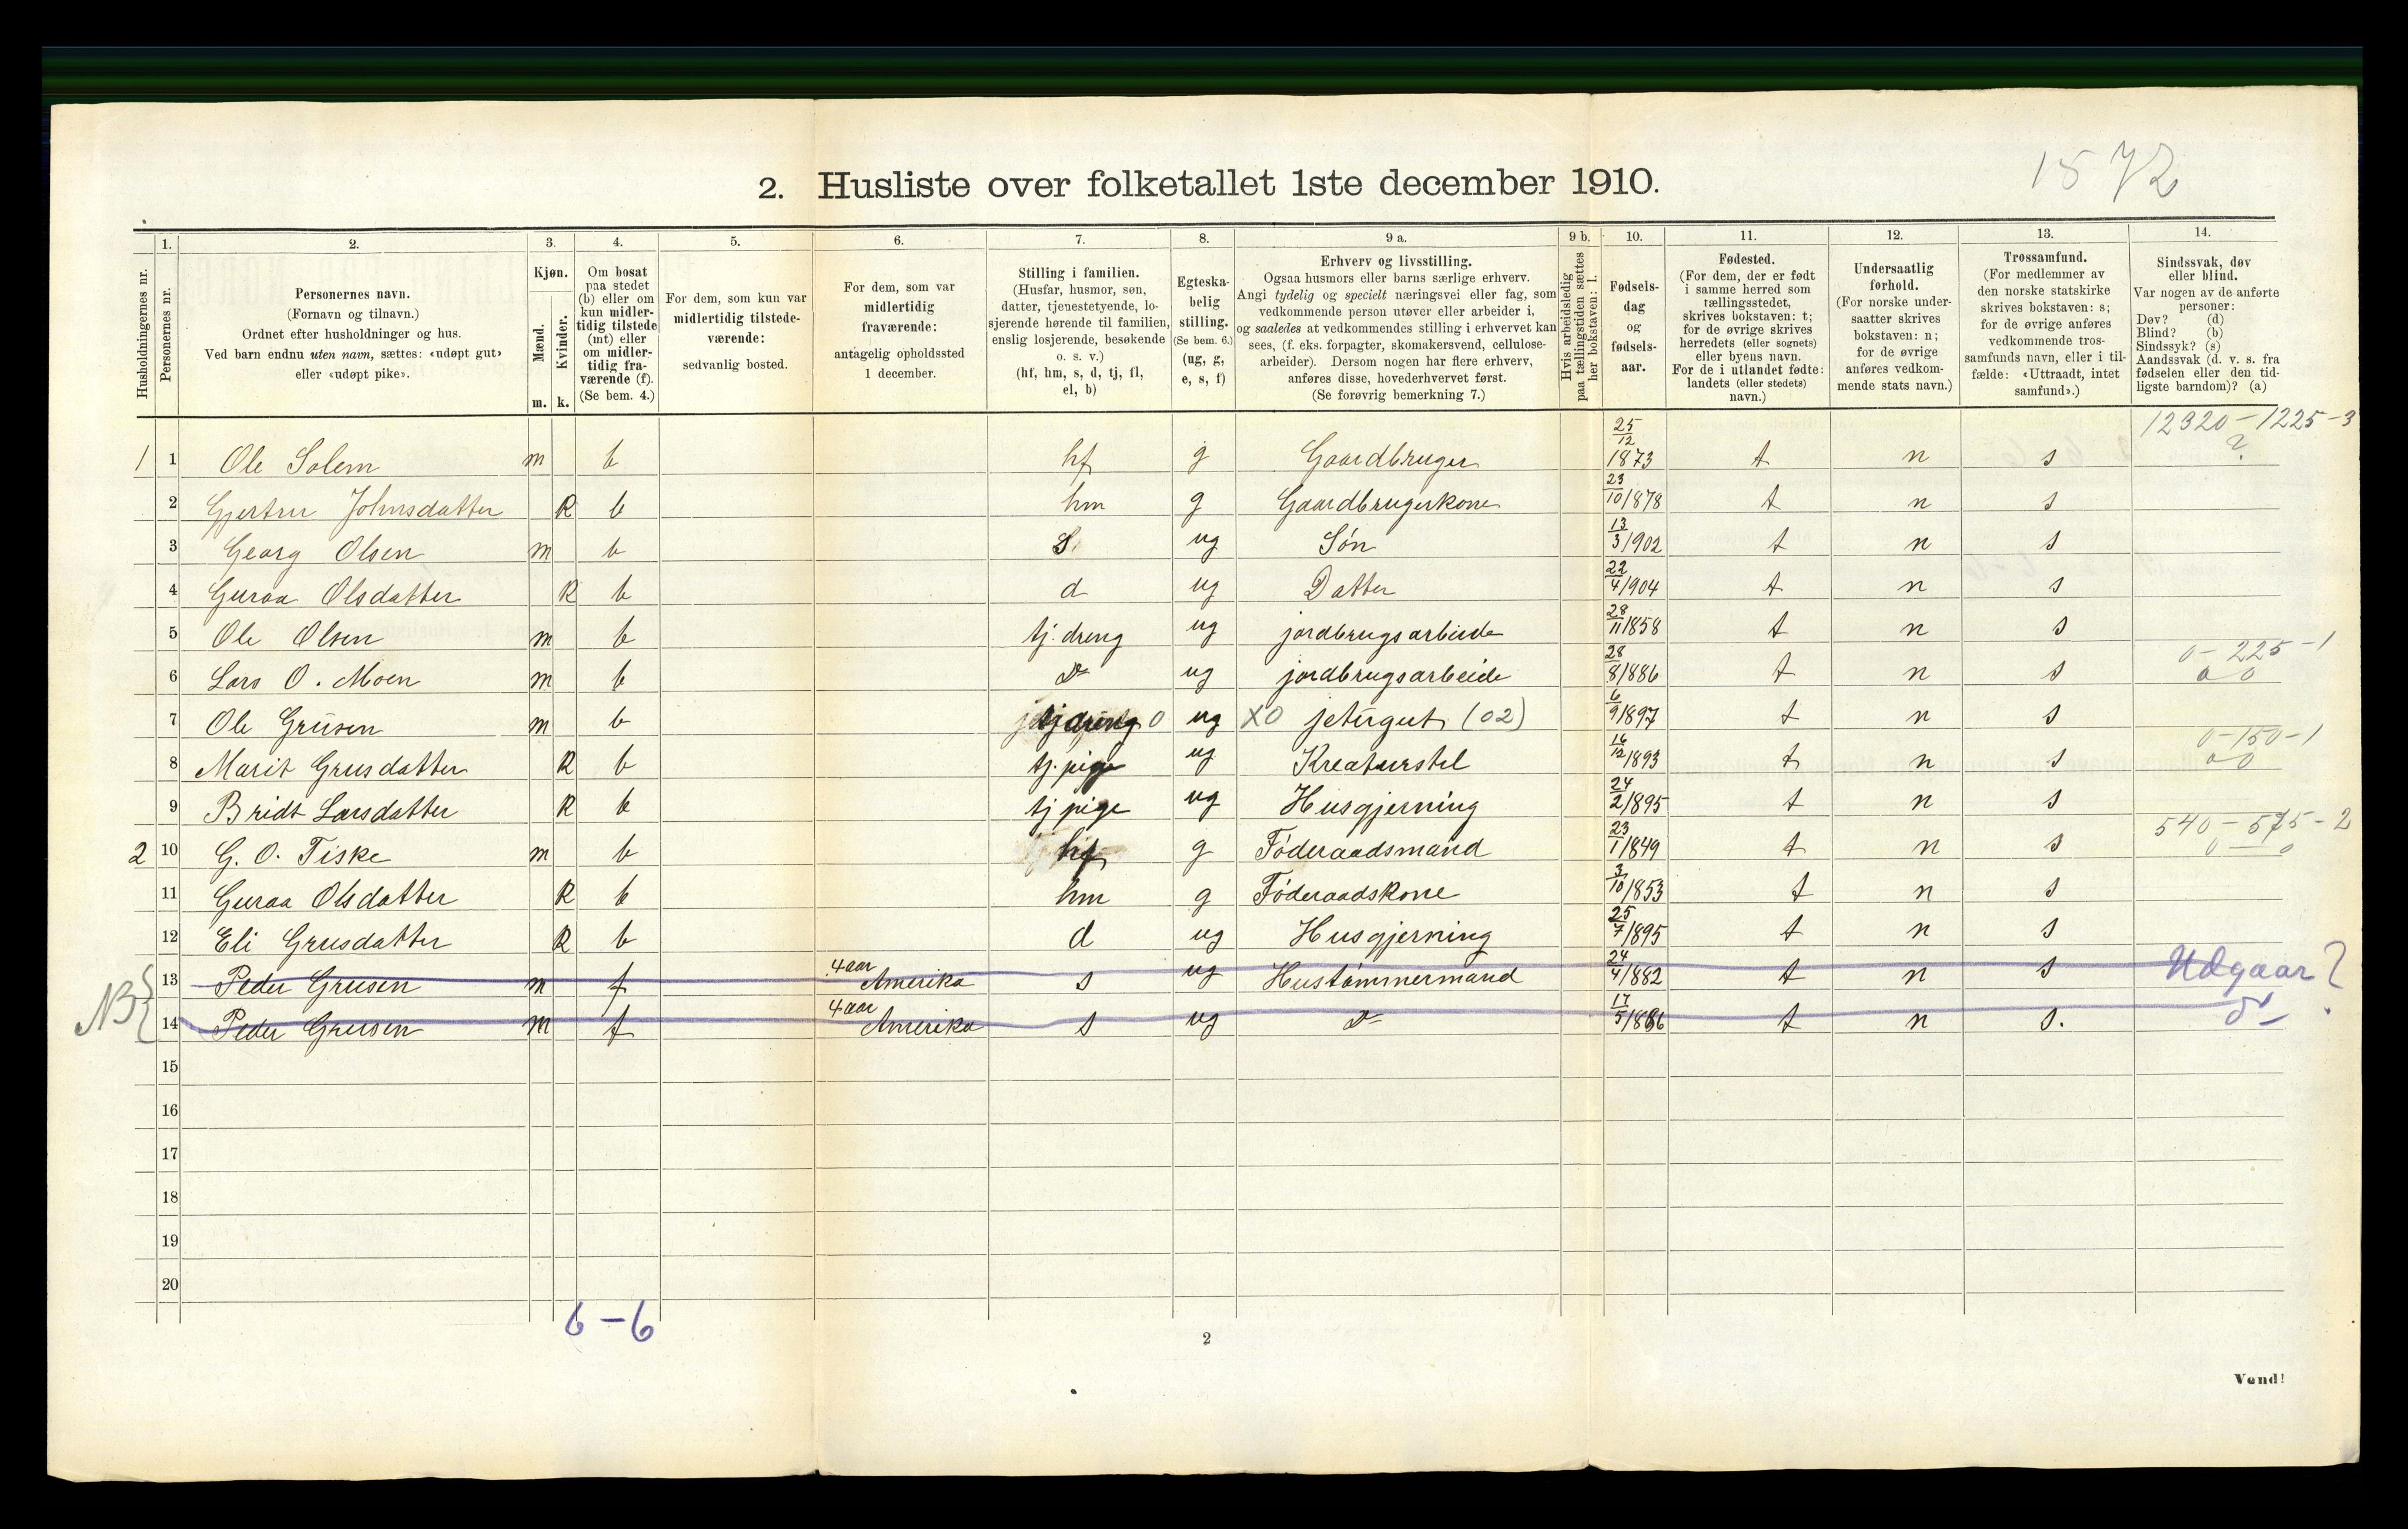 15 72
2. Husliste over folketallet 1ste december 1910.
Husholdningernes nr.
1. Personernes nr.
2. Personernes navn. (Fornavn og tilnavn.) Ordnet efter husholdninger og hus. Ved barn endnu uten navn, sættes: «udøpt gut» eller «udøpt pike».
3. Kjøn. Mænd. m. Kvinder. k.
4. Om bosat paa stedet (b) eller om kun midlertidig tilstede (mt) eller om midlertidig fraværende (f). (Se bem. 4.)
5. For dem, som kun var midlertidig tilstedeværende: sedvanlig bosted.
6. For dem, som var midlertidig fraværende: antagelig opholdssted 1 december.
7. Stilling i familien. (Husfar, husmor, søn, datter, tjenestetyende, losjerende hørende til familien, enslig losjerende, besøkende o. s. v.) (hf, hm, s, d, tj, fl, el, b)
8. Egteskabelig stilling. (Se bem. 6.) (ug, g, e, s, f)
9 a. Erhverv og livsstilling. Ogsaa husmors eller barns særlige erhverv. Angi tydelig og specielt næringsvei eller fag, som vedkommende person utøver eller arbeider i, og saaledes at vedkommendes stilling i erhvervet kan sees, (f. eks. forpagter, skomakersvend, cellulosearbeider). Dersom nogen har flere erhverv, anføres disse, hovederhvervet først. (Se forøvrig bemerkning 7.)
9 b. Hvis arbeidsledig paa tællingstiden sættes her bokstaven: l.
10. Fødselsdag og fødselsaar.
11. Fødested. (For dem, der er født i samme herred som tællingsstedet, skrives bokstaven: t; for de øvrige skrives herredets (eller sognets) eller byens navn. For de i utlandet fødte: landets (eller stedets) navn.)
12. Undersaatlig forhold. (For norske undersaatter skrives bokstaven: n; for de øvrige anføres vedkommende stats navn.)
13. Trossamfund. (For medlemmer av den norske statskirke skrives bokstaven: s; for de øvrige anføres vedkommende trossamfunds navn, eller i tilfælde: «Uttraadt, intet samfund».)
14. Sindssvak, døv eller blind. Var nogen av de anførte personer: Døv? (d) Blind? (b) Sindssyk? (s) Aandssvak (d. v. s. fra fødselen eller den tidligste barndom)? (a)
12320-1225-3
1 1 Ole Solem m b hf g Gaardbruger 25/12 1873 t n s ?
2 Gjertru Johnsdatter k b hm g Gaardbrugerkone 23/10 1878 t n s
3 Georg Olsen m b s ug Søn 13/3 1902 t n s
4 Guraa Olsdatter k b d ug Datter 22/4 1904 t n s
5 Ole Olsen m b tj. dreng ug jordbrugsarbeide 28/11 1858 t n s
0-225-1
6 Lars O. Moen m b do ug jordbrugsarbeide 28/8 1886 t n s 0 0
7 Ole Grusen m b tj dreng 0 ug XO jetergut (02) 6/9 1897 t n s
0-150-1
8 Marit Grusdatter k b tj. pige ug Kreaturstel 16/12 1893 t n s 0 0
9 Bridt Larsdatter k b tj pige ug Husgjerning 24/2 1895 t n s
540-575-2
2 10 G. O. Tiske m b hf g Føderaadsmand 23/1 1849 t n s 0 0
11 Guraa Olsdatter k b hm g Føderaadskone 3/10 1853 t n s
12 Eli Grusdatter k b d ug Husgjerning 25/7 1895 t n s
NB 13 Peder Grusen m f 4 aar Amerika s ug Hustømmermand 24/4 1882 t n s Udgaar?
14 Peder Grusen m f 4 aar Amerika s ug do 17/5 1886 t n s. do
15
16
17
18
19
20
6-6
2
Vend!